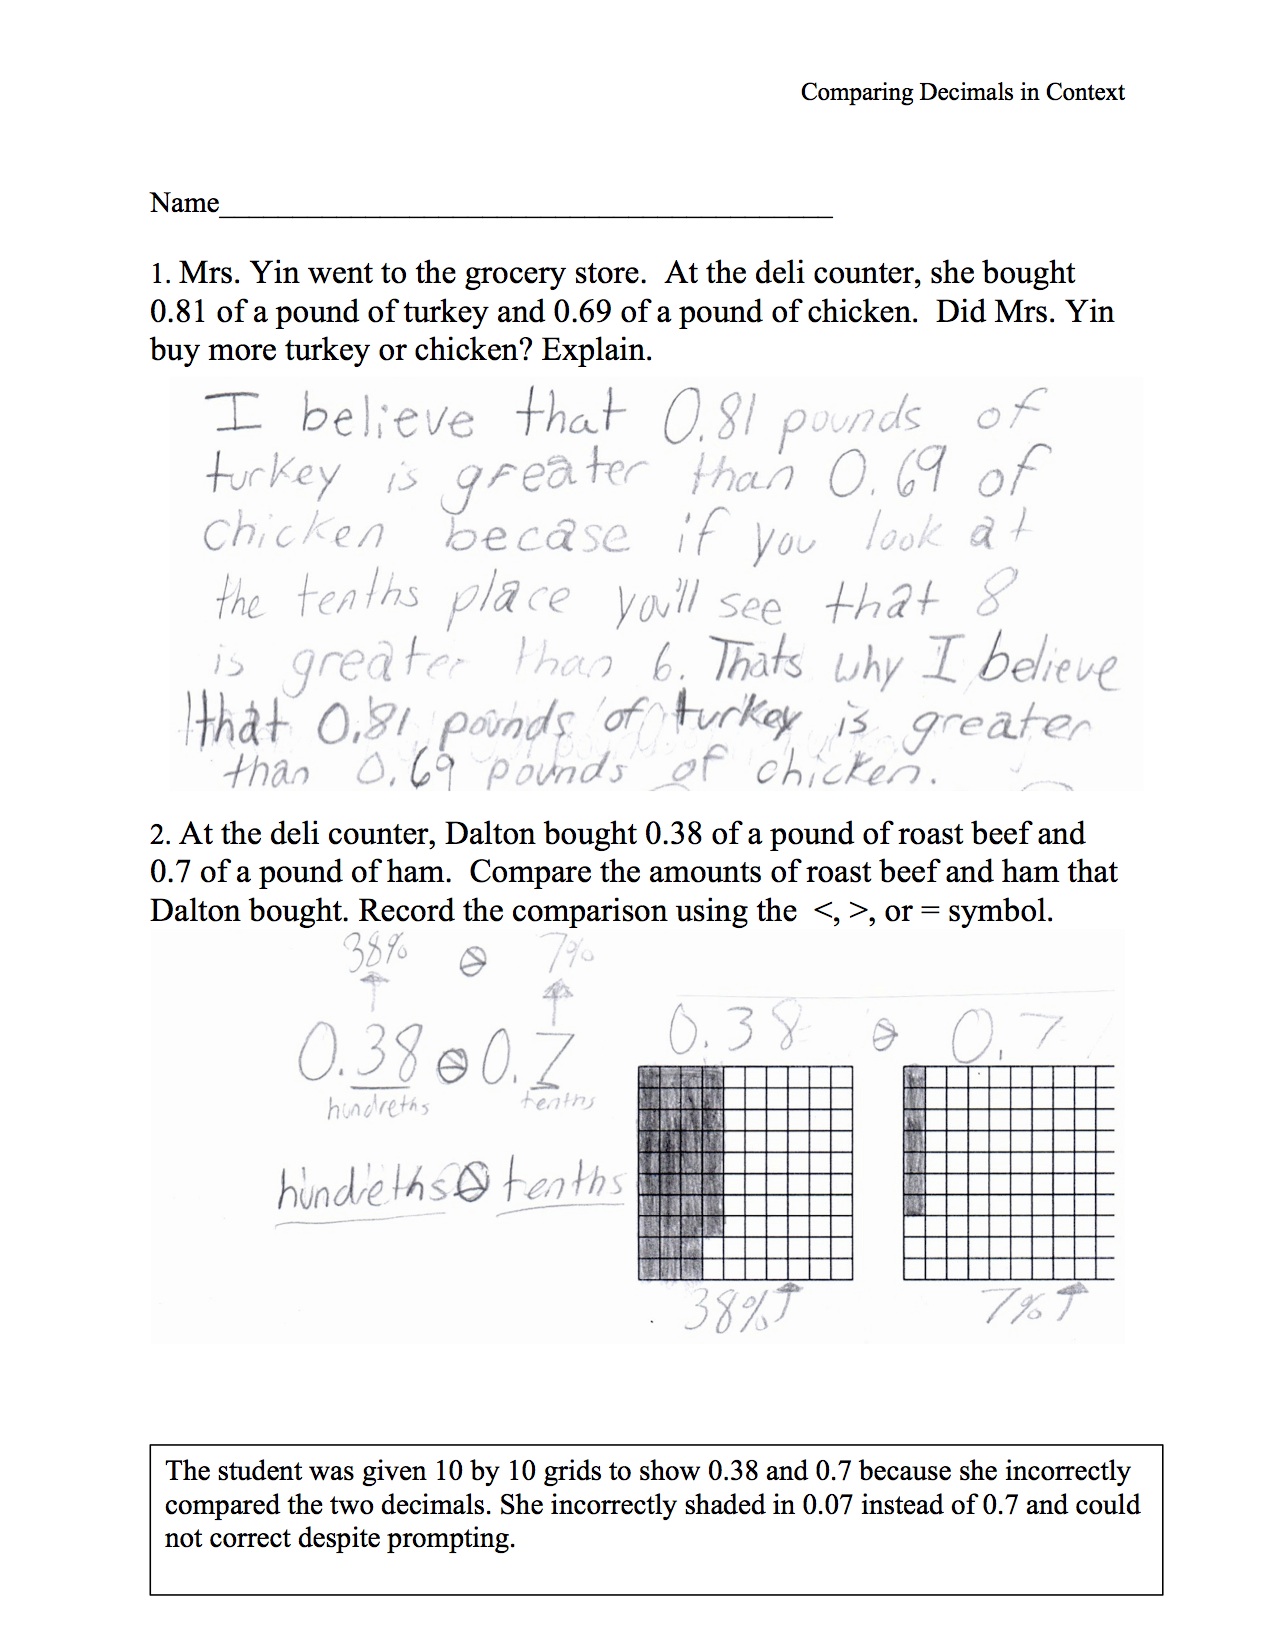 Comparing Decimals in Context
Name
1. Mrs. Yin went to the grocery store. At the deli counter, she bought
0.81 of a pound of turkey and 0.69 of a pound of chicken. Did Mrs. Yin
buy more turkey or chicken? Explain.
I believe that 0.81 pounds of
turkey is greater than 0.69 of
chicken becase if you look at
the tenths place you'll see that 8
is greater than 6. Thats why I believe
that 0.81 pounds of turkey is greater
than 0.69 pounds of chicken.
2. At the deli counter, Dalton bought 0.38 of a pound of roast beef and
0.7 of a pound of ham. Compare the amounts of roast beef and ham that
Dalton bought. Record the comparison using the <, >, or = symbol.
38% > 7%
0.38 > 0.7
hundreths tenths
hundreths > tenths
0.38 > 0.7
38%↑ 7%↑
The student was given 10 by 10 grids to show 0.38 and 0.7 because she incorrectly
compared the two decimals. She incorrectly shaded in 0.07 instead of 0.7 and could
not correct despite prompting.